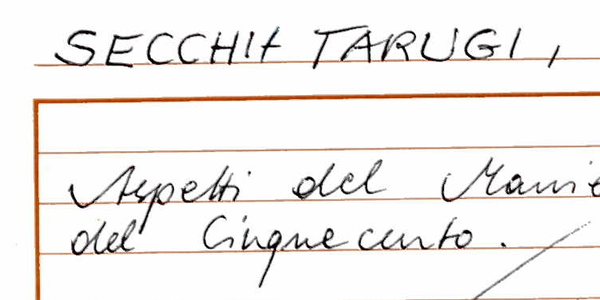 SECCHI TARUGI,
Aspetti del Manie
del Cinquecento.